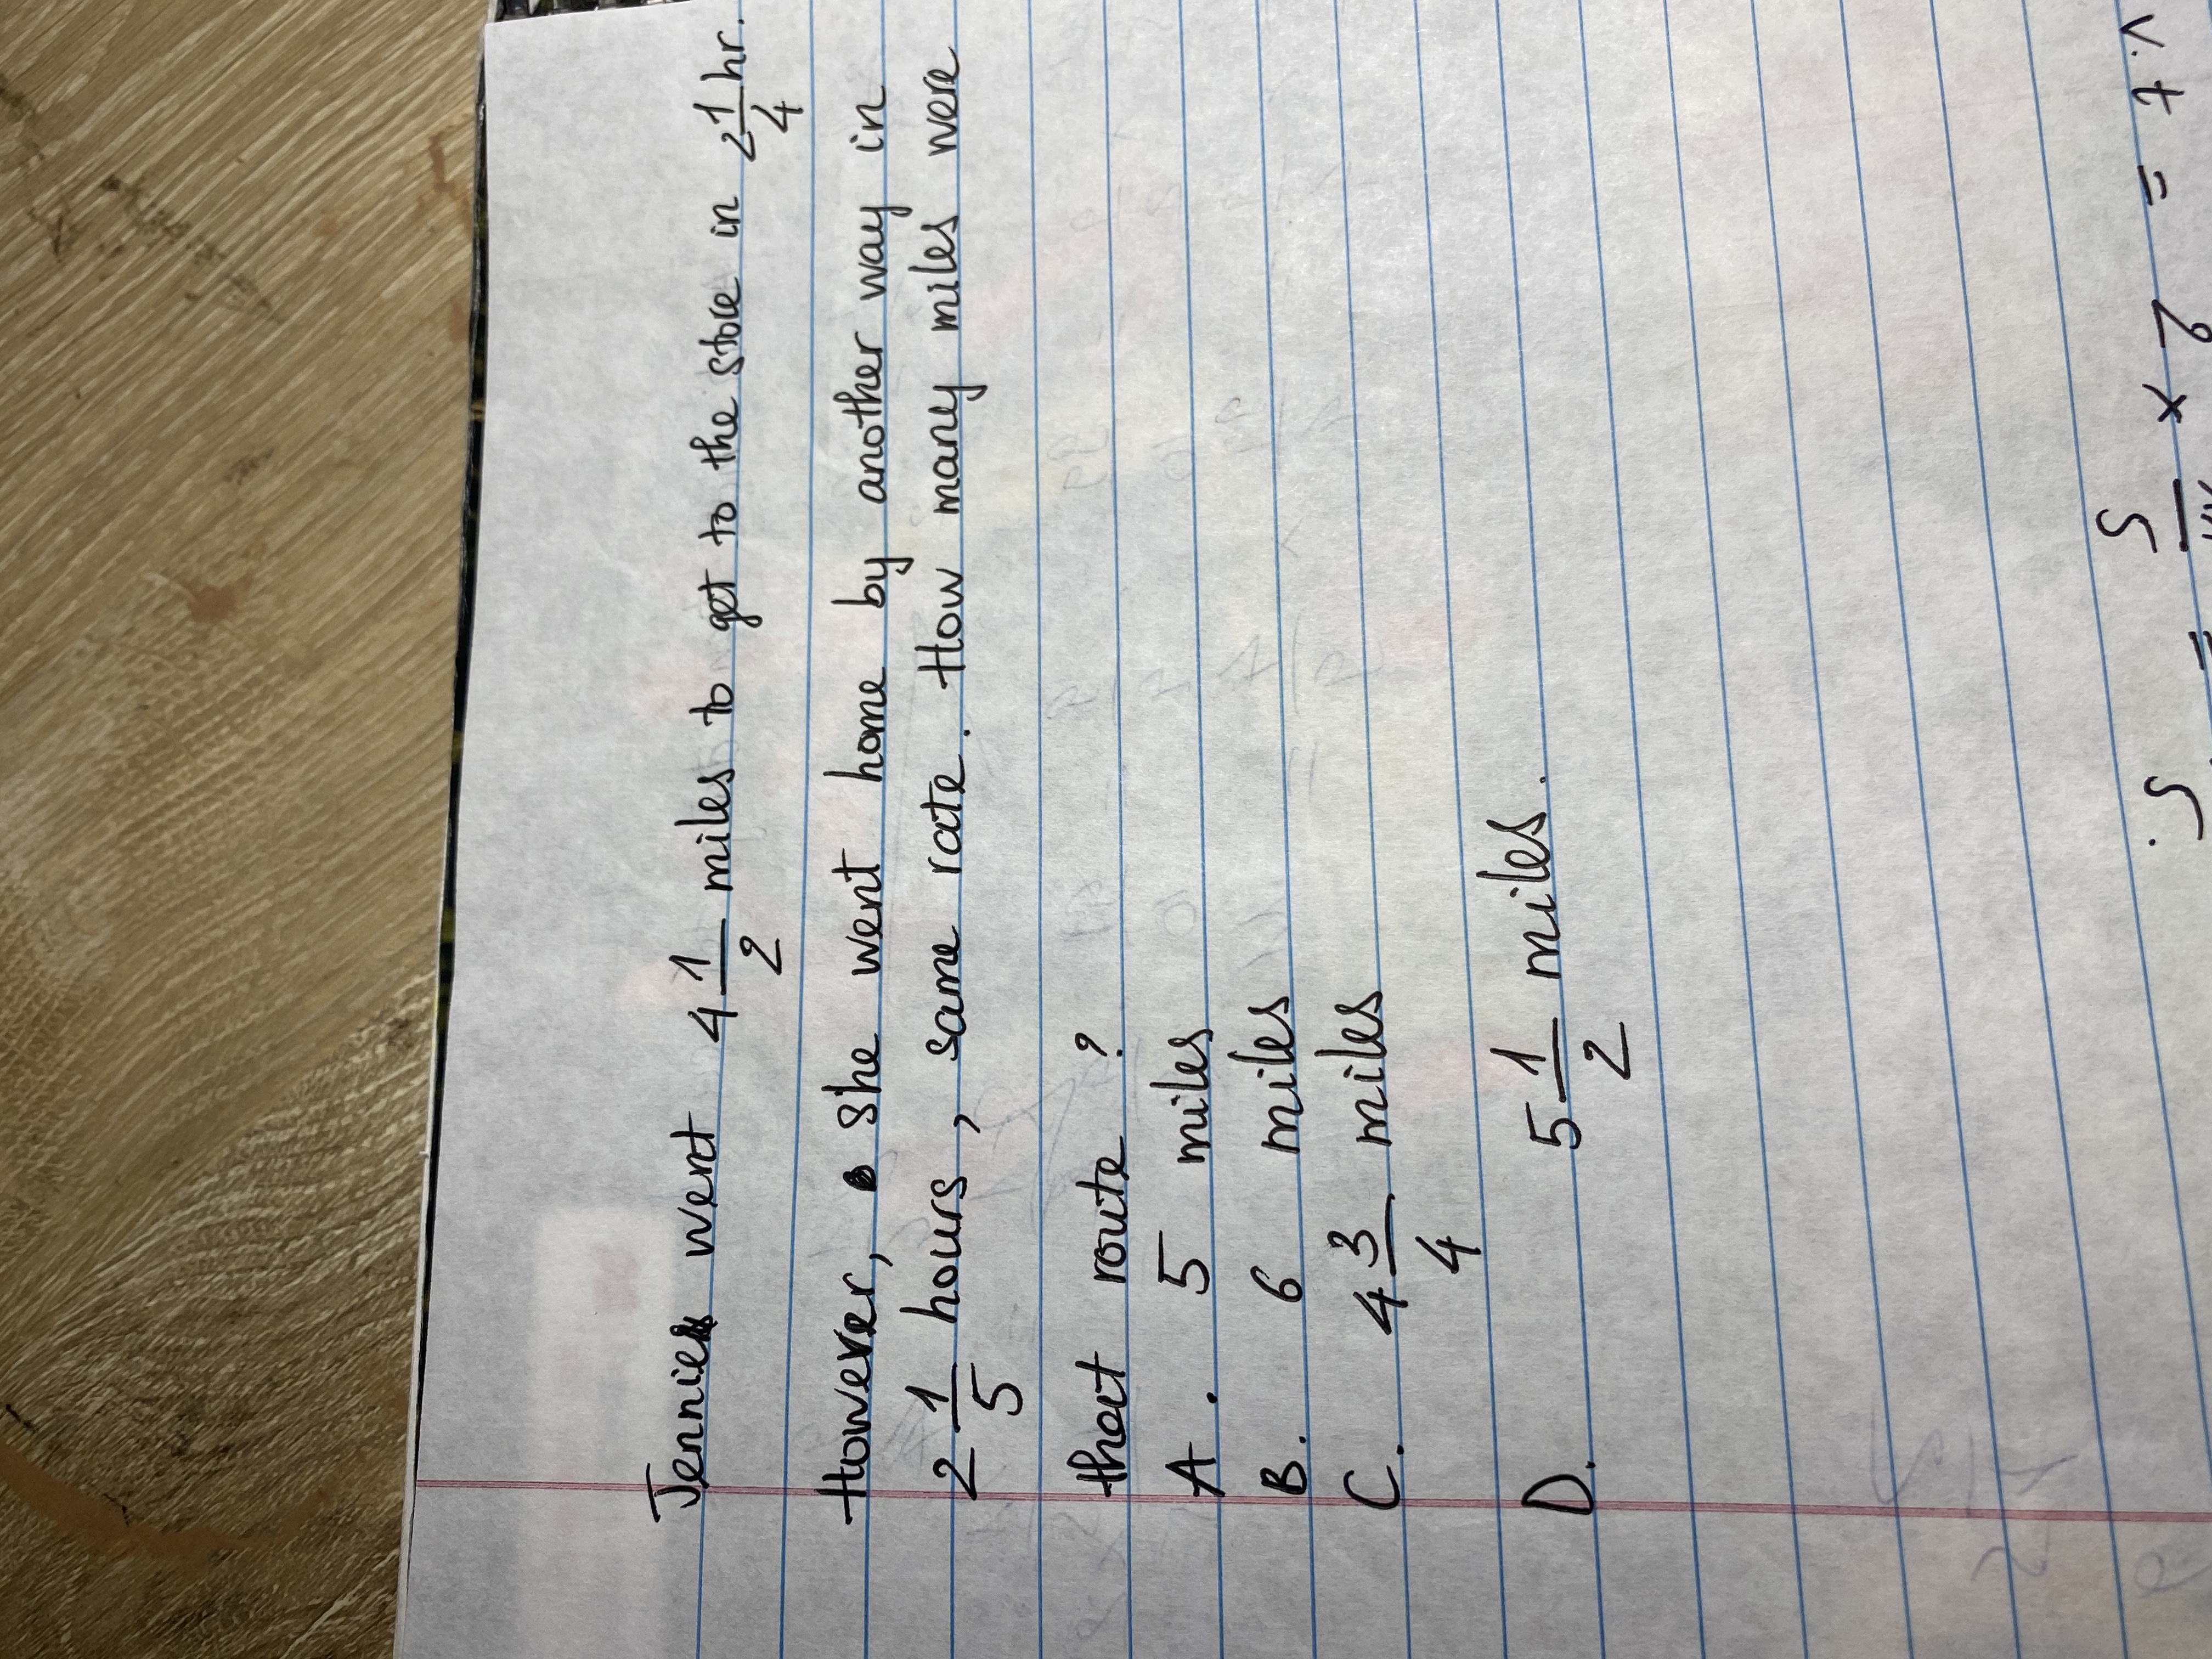 Jennie went 4 1/2 miles to get to the store in 2 1/4 hr.
However, she went home by another way in
2 1/5 hours, same rate. How many miles were
that route?
A. 5 miles
B. 6 miles
C. 4 3/4 miles
D. 5 1/2 miles.